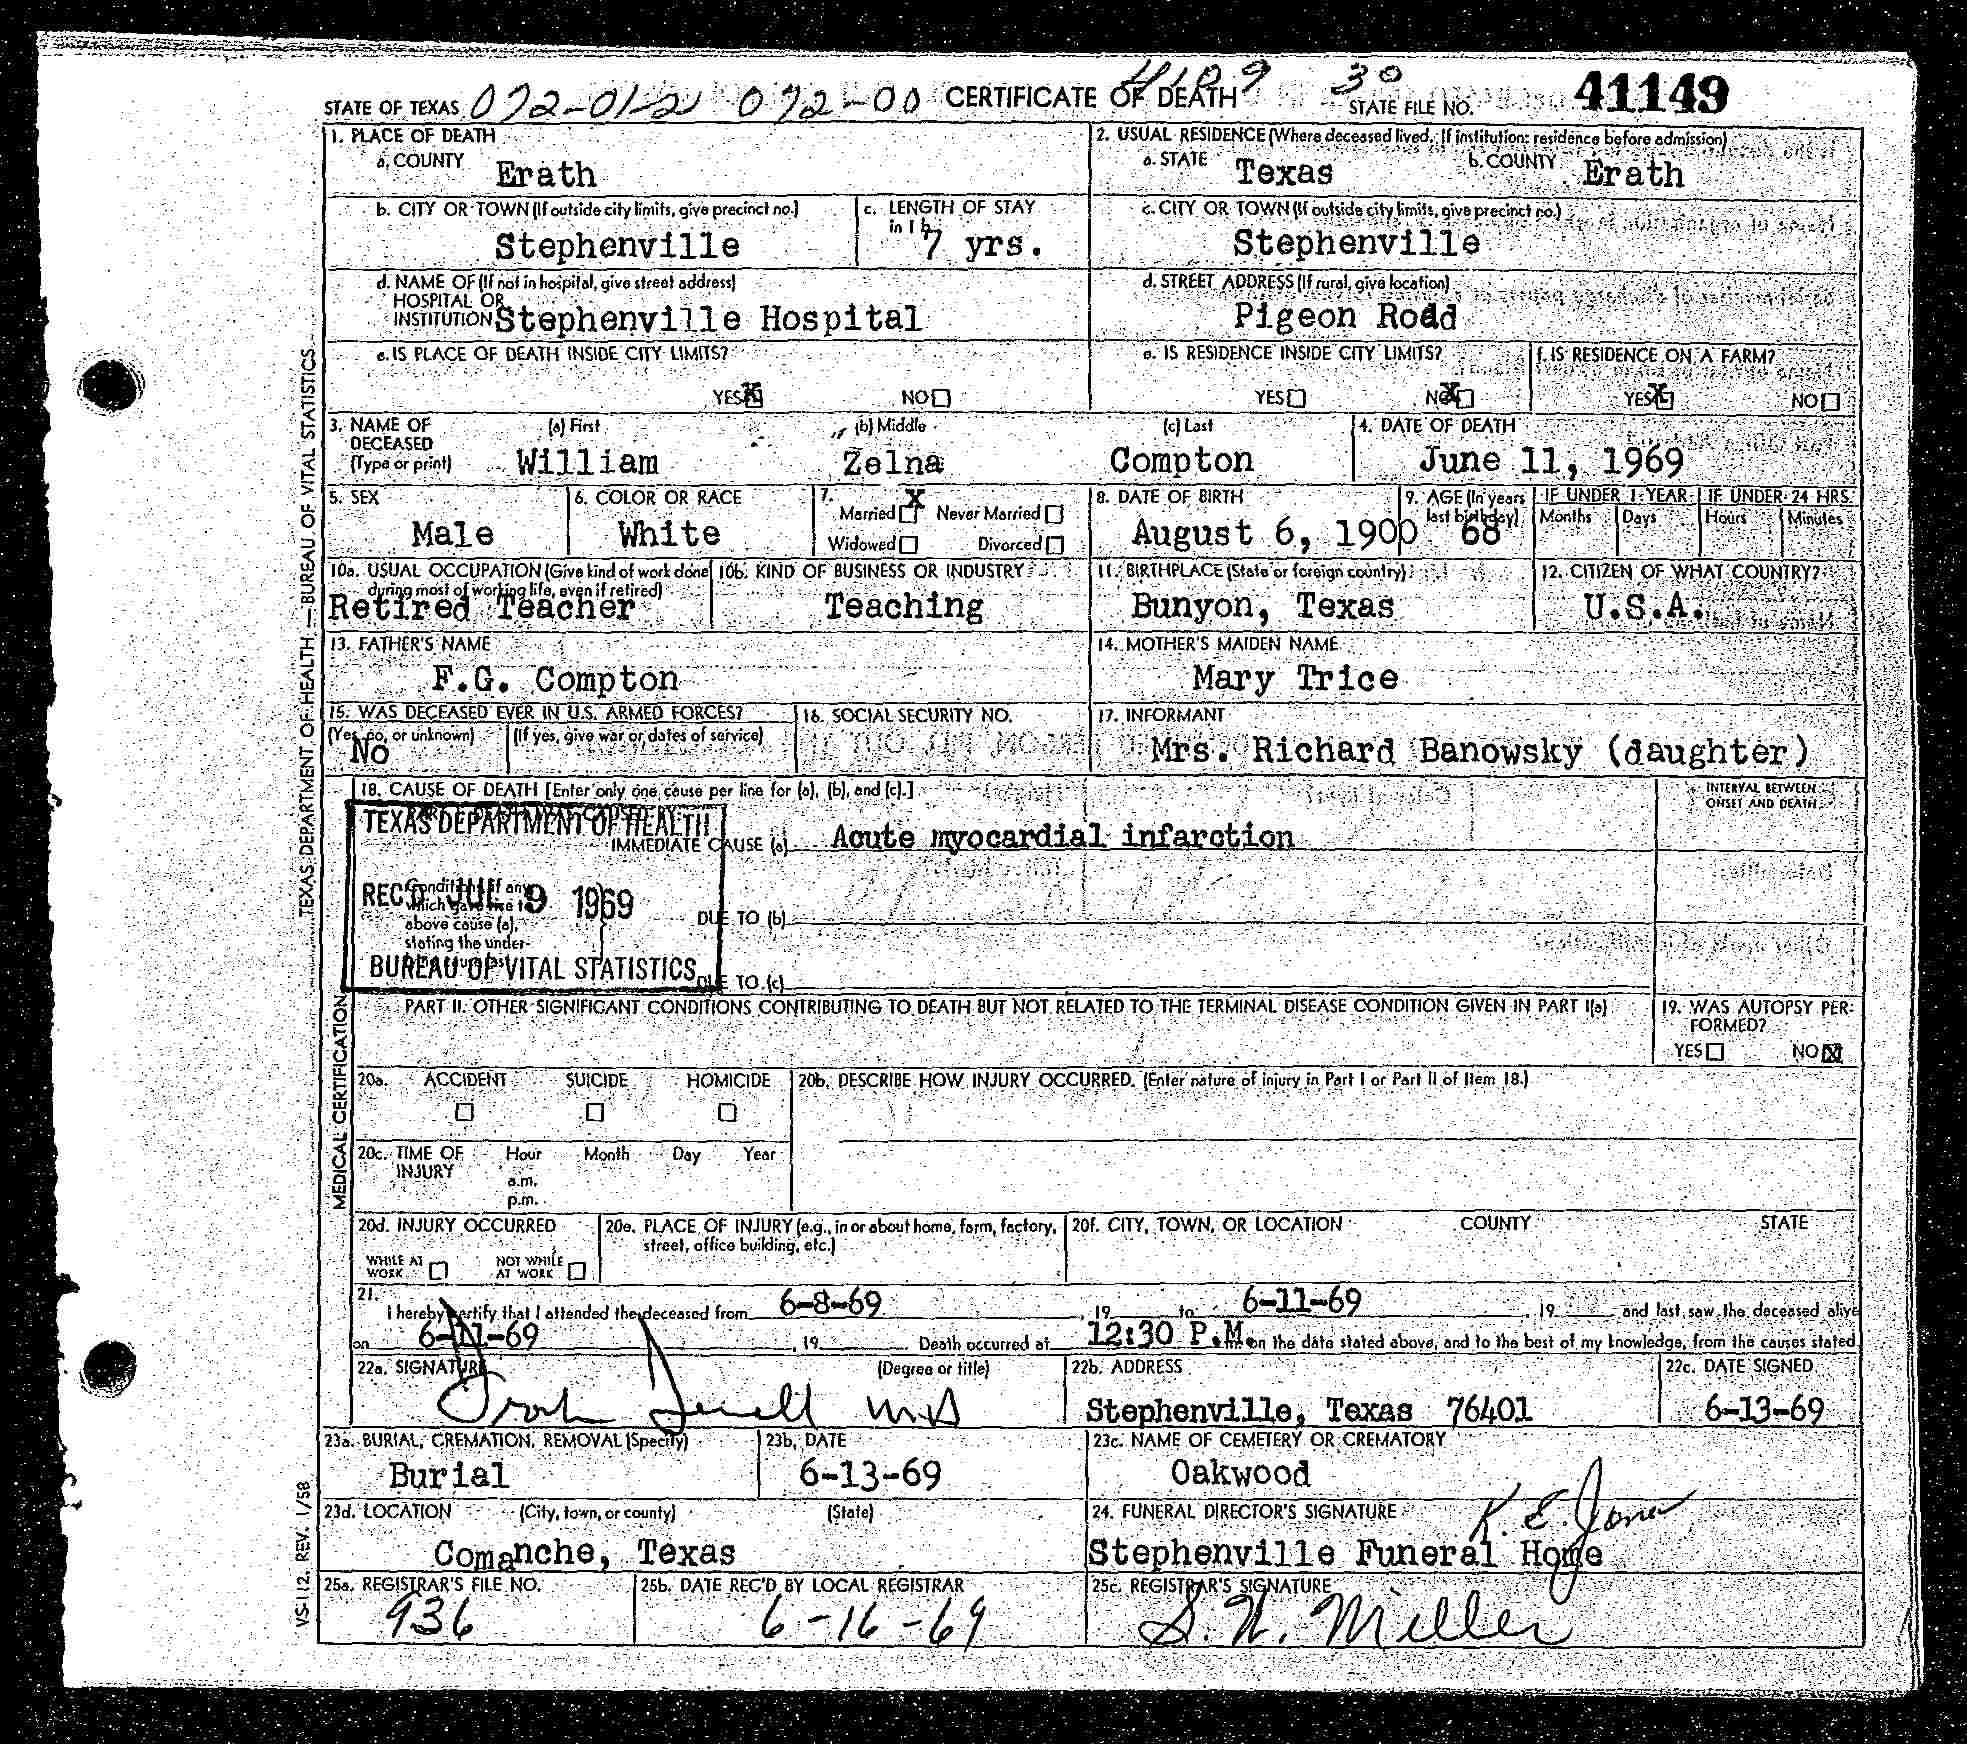 STATE OF TEXAS 072-01-2 072-00 CERTIFICATE OF DEATH 30 STATE FILE NO. 41149
1. PLACE OF DEATH
a. COUNTY Erath
2. USUAL RESIDENCE (Where deceased lived. If institution: residence before admission)
a. STATE Texas b. COUNTY Erath
b. CITY OR TOWN (If outside city limits, give precinct no.) Stephenville
c. LENGTH OF STAY in 1 b. 7 yrs.
c. CITY OR TOWN (If outside city limits, give precinct no.) Stephenville
d. NAME OF (If not in hospital, give street address)
HOSPITAL OR
INSTITUTION Stephenville Hospital
d. STREET ADDRESS (If rural, give location)
Pigeon Road
e. IS PLACE OF DEATH INSIDE CITY LIMITS?
YES X NO
e. IS RESIDENCE INSIDE CITY LIMITS?
YES NO X
f. IS RESIDENCE ON A FARM?
YES X NO
3. NAME OF DECEASED (Type or print)
(a) First William
(b) Middle Zelna
(c) Last Compton
4. DATE OF DEATH
June 11, 1969
5. SEX Male
6. COLOR OR RACE White
7. Married X Never Married
Widowed Divorced
8. DATE OF BIRTH August 6, 1900
9. AGE (In years last birthday) 68
IF UNDER 1 YEAR Months Days
IF UNDER 24 HRS. Hours Minutes
10a. USUAL OCCUPATION (Give kind of work done during most of working life, even if retired)
Retired Teacher
10b. KIND OF BUSINESS OR INDUSTRY
Teaching
11. BIRTHPLACE (State or foreign country)
Bunyon, Texas
12. CITIZEN OF WHAT COUNTRY?
U.S.A.
13. FATHER'S NAME
F.G. Compton
14. MOTHER'S MAIDEN NAME
Mary Trice
15. WAS DECEASED EVER IN U.S. ARMED FORCES?
(Yes, no, or unknown) No
(If yes, give war or dates of service)
16. SOCIAL SECURITY NO.
17. INFORMANT
Mrs. Richard Banowsky (daughter)
18. CAUSE OF DEATH [Enter only one cause per line for (a), (b), and (c).]
INTERVAL BETWEEN ONSET AND DEATH
TEXAS DEPARTMENT OF HEALTH
IMMEDIATE CAUSE (a) Acute myocardial infarction
REC'D JUL 9 1969
Conditions, if any, which gave rise to above cause (a), stating the under-
DUE TO (b)
BUREAU OF VITAL STATISTICS
DUE TO (c)
PART II. OTHER SIGNIFICANT CONDITIONS CONTRIBUTING TO DEATH BUT NOT RELATED TO THE TERMINAL DISEASE CONDITION GIVEN IN PART I(a)
19. WAS AUTOPSY PERFORMED?
YES NO X
20a. ACCIDENT SUICIDE HOMICIDE
20b. DESCRIBE HOW INJURY OCCURRED. (Enter nature of injury in Part I or Part II of Item 18.)
20c. TIME OF INJURY Hour Month Day Year
a.m.
p.m.
20d. INJURY OCCURRED
WHILE AT WORK NOT WHILE AT WORK
20e. PLACE OF INJURY (e.g., in or about home, farm, factory, street, office building, etc.)
20f. CITY, TOWN, OR LOCATION COUNTY STATE
21. I hereby certify that I attended the deceased from 6-8-69, 19 to 6-11-69, 19 and last saw the deceased alive
on 6-11-69, 19 Death occurred at 12:30 P.M. on the date stated above, and to the best of my knowledge, from the causes stated
22a. SIGNATURE (Degree or title)
M.D
22b. ADDRESS
Stephenville, Texas 76401
22c. DATE SIGNED
6-13-69
23a. BURIAL, CREMATION, REMOVAL (Specify)
Burial
23b. DATE
6-13-69
23c. NAME OF CEMETERY OR CREMATORY
Oakwood
23d. LOCATION (City, town, or county) (State)
Comanche, Texas
24. FUNERAL DIRECTOR'S SIGNATURE K. E. Jones
Stephenville Funeral Home
25a. REGISTRAR'S FILE NO.
936
25b. DATE REC'D BY LOCAL REGISTRAR
6-16-69
25c. REGISTRAR'S SIGNATURE
S. N. Miller
TEXAS DEPARTMENT OF HEALTH — BUREAU OF VITAL STATISTICS
MEDICAL CERTIFICATION
VS-112, REV. 1/58